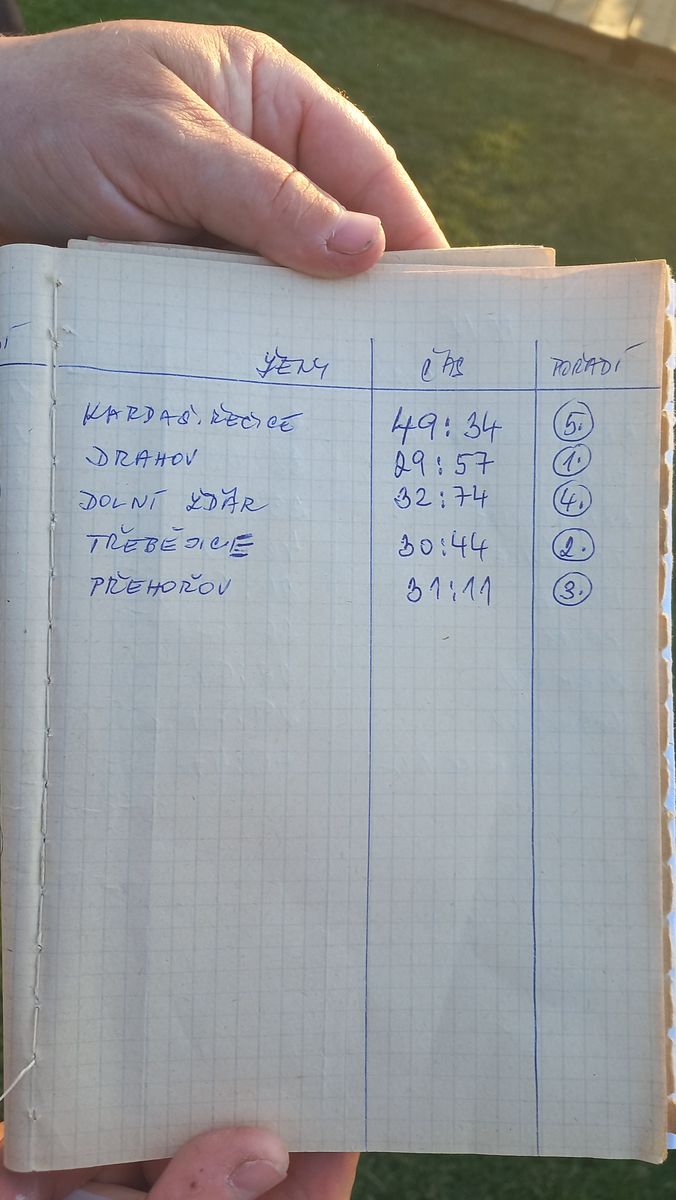 ŽENY ČAS POŘADÍ
KARDAŠ. ŘEČICE 49:34 5.
DRAHOV 29:57 1.
DOLNÍ ŽĎÁR 32:74 4.
TŘEBĚJICE 30:44 2.
PŘEHOŘOV 31:11 3.